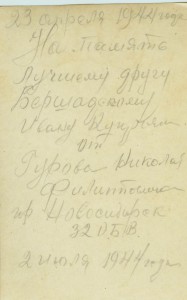 23 апреля 1944 года
На память
Лучшему другу
Бершадскому
Ивану
от
Гурова Николая
Филипповича
Новосибирск
2 июля 1944 года